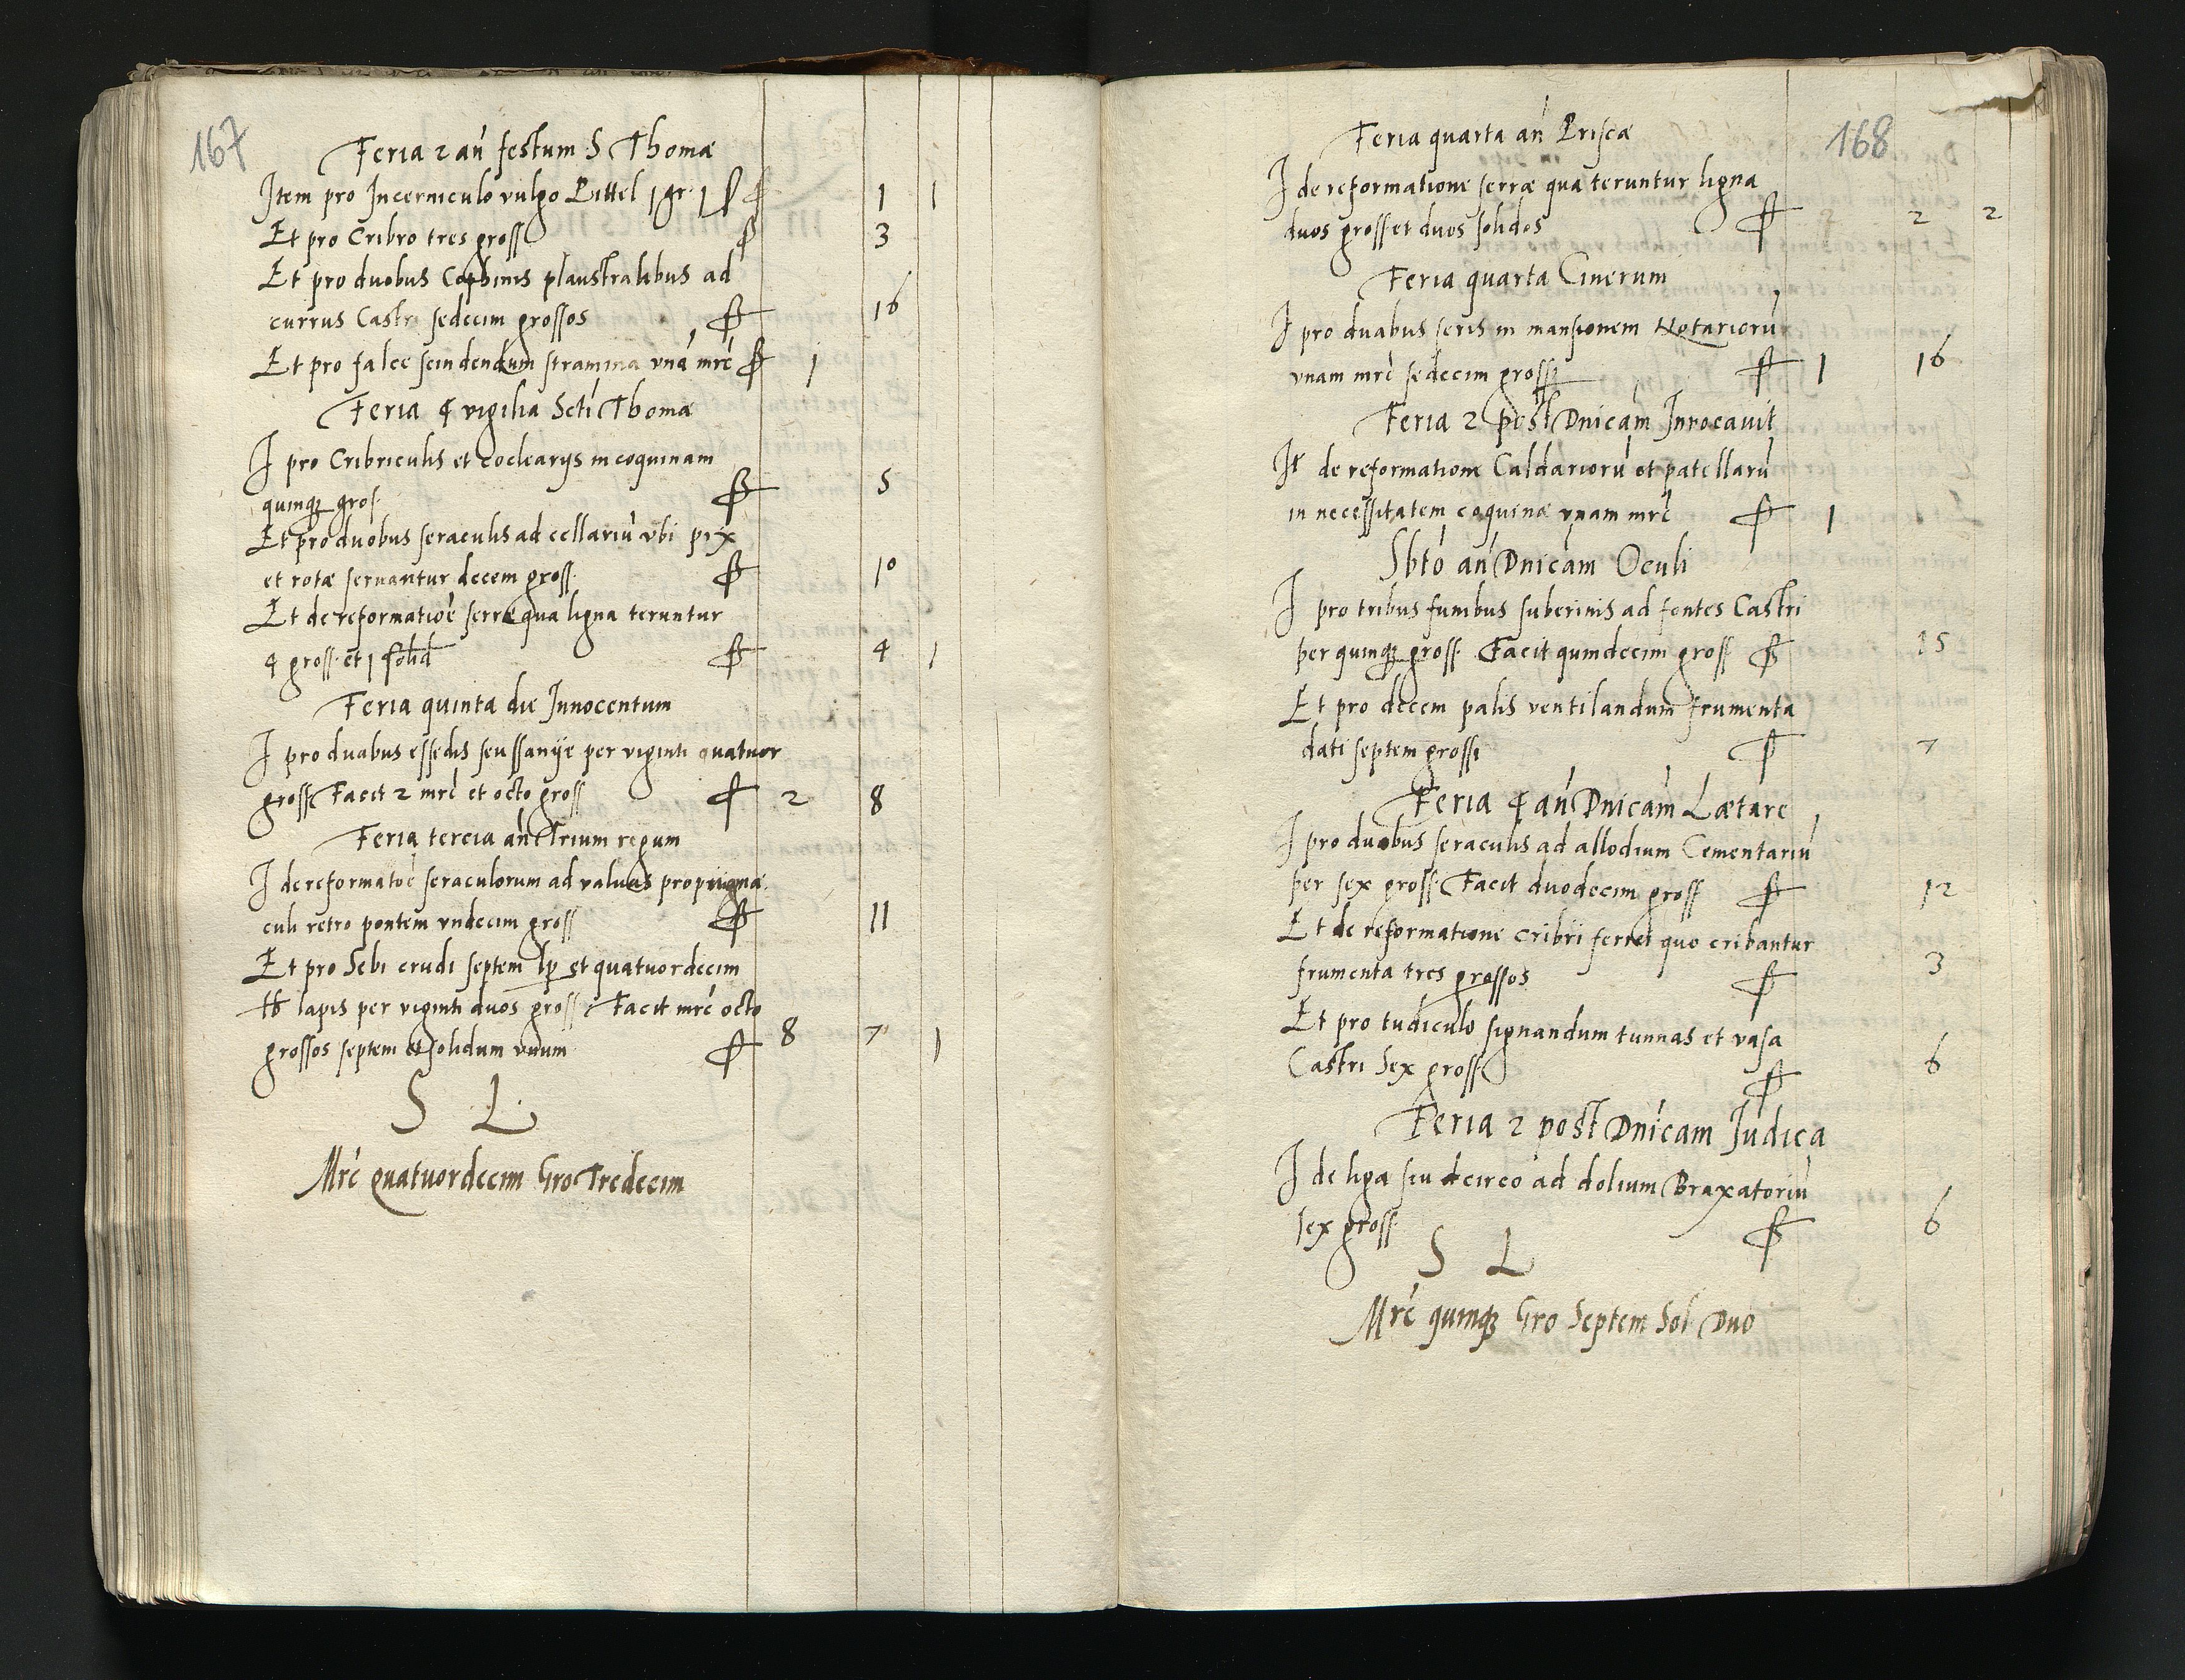 167
Feria 2 añ festum S Thomæ
Item pro Incerniculo vulgo Bittel 1 gr. 1 ſ 1 1
Et pro Cribro tres gross 3
Et pro duobus Cophinis plaustralibus ad
currus Castri sedecim grossos 16
Et pro falce scindendum stramina vná mrć 1
Feria 4 vigilia Scti Thomæ
I pro Cribriculis et coclearys in coquinam
quinqȝ gros. 5
Et pro duobus seraculis ad cellariú vbi pix
et rotæ seruantur decem gross. 10
Et de reformatioé serre qua ligna teruntur
4 gross. et 1 solid 4 1
Feria quinta die Innocentum
I pro duabus essedis seu ssanÿe per viginti quatuor
gross Facit 2 mrć et octo gross 2 8
Feria tercia añ Trium regum
I de reformatoé seraculorum ad valuas propugna
culi retro pontem vndecim gross 11
Et pro Sebi crudi septem lp et quatuordecim
tt lapis per viginti duos gross. Facit mrć octo
grossos septem et solidum vnum 8 7 1
S L
Mrć quatuordecim Gro Tredecim
168
Feria quarta añ Priscæ
I de reformatione serræ qua teruntur ligna
duos gross et duos solidos 2 2
Feria quarta Cinerum
I pro duabus seris in mansionem Notariorú
vnam mrć sedecim gross 1 16
Feria 2 post Dnicam Inuocauit
It de reformatione Caldariorú et patellarú
in necessitatem coquinæ vnam mrć 1
Sbto añ Dnicam Oculi
I pro tribus funibus suberinis ad fontes Castri
per quinqȝ gross. Facit quindecim gross 15
Et pro decem palis ventilandum frumenta
dati septem grossi 7
Feria 4 añ Dnicam Lætare
I pro duobus seraculis ad allodium Cementariú
per sex gross. Facit duodecim gross 12
Et de reformatione cribri ferrei quo cribantur
frumenta tres grossos 3
Et pro tudiculo signandum tunnas et vasa
Castri Sex gross 6
Feria 2 post Dnicam Iudica
I de liga seu circo ad dolium Braxatoriú
sex gross. 6
S L
Mrć quinqȝ Gro Septem Sol Duo